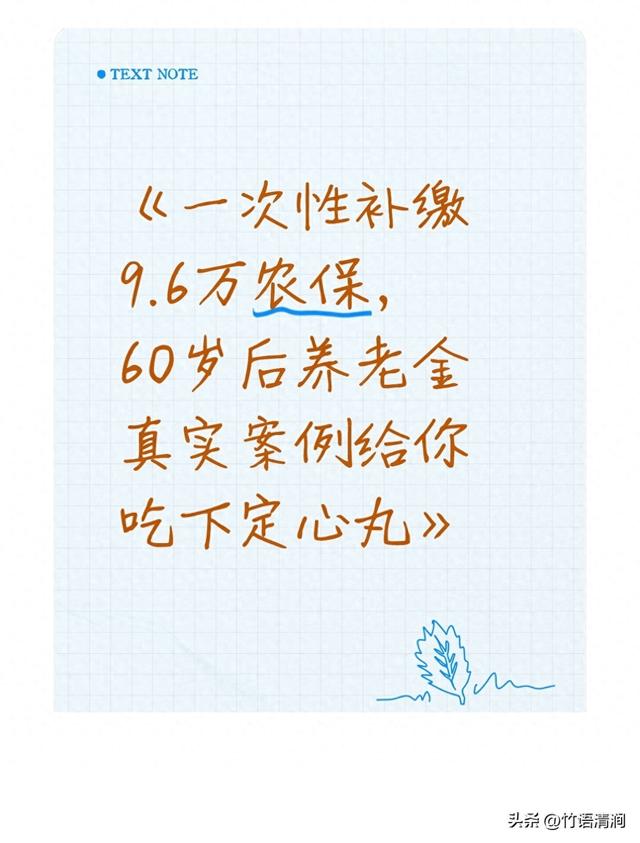 TEXT NOTE
《一次性补缴
9.6万农保,
60岁后养老金
真实案例给你
吃下定心丸》
头条 @竹语清涧